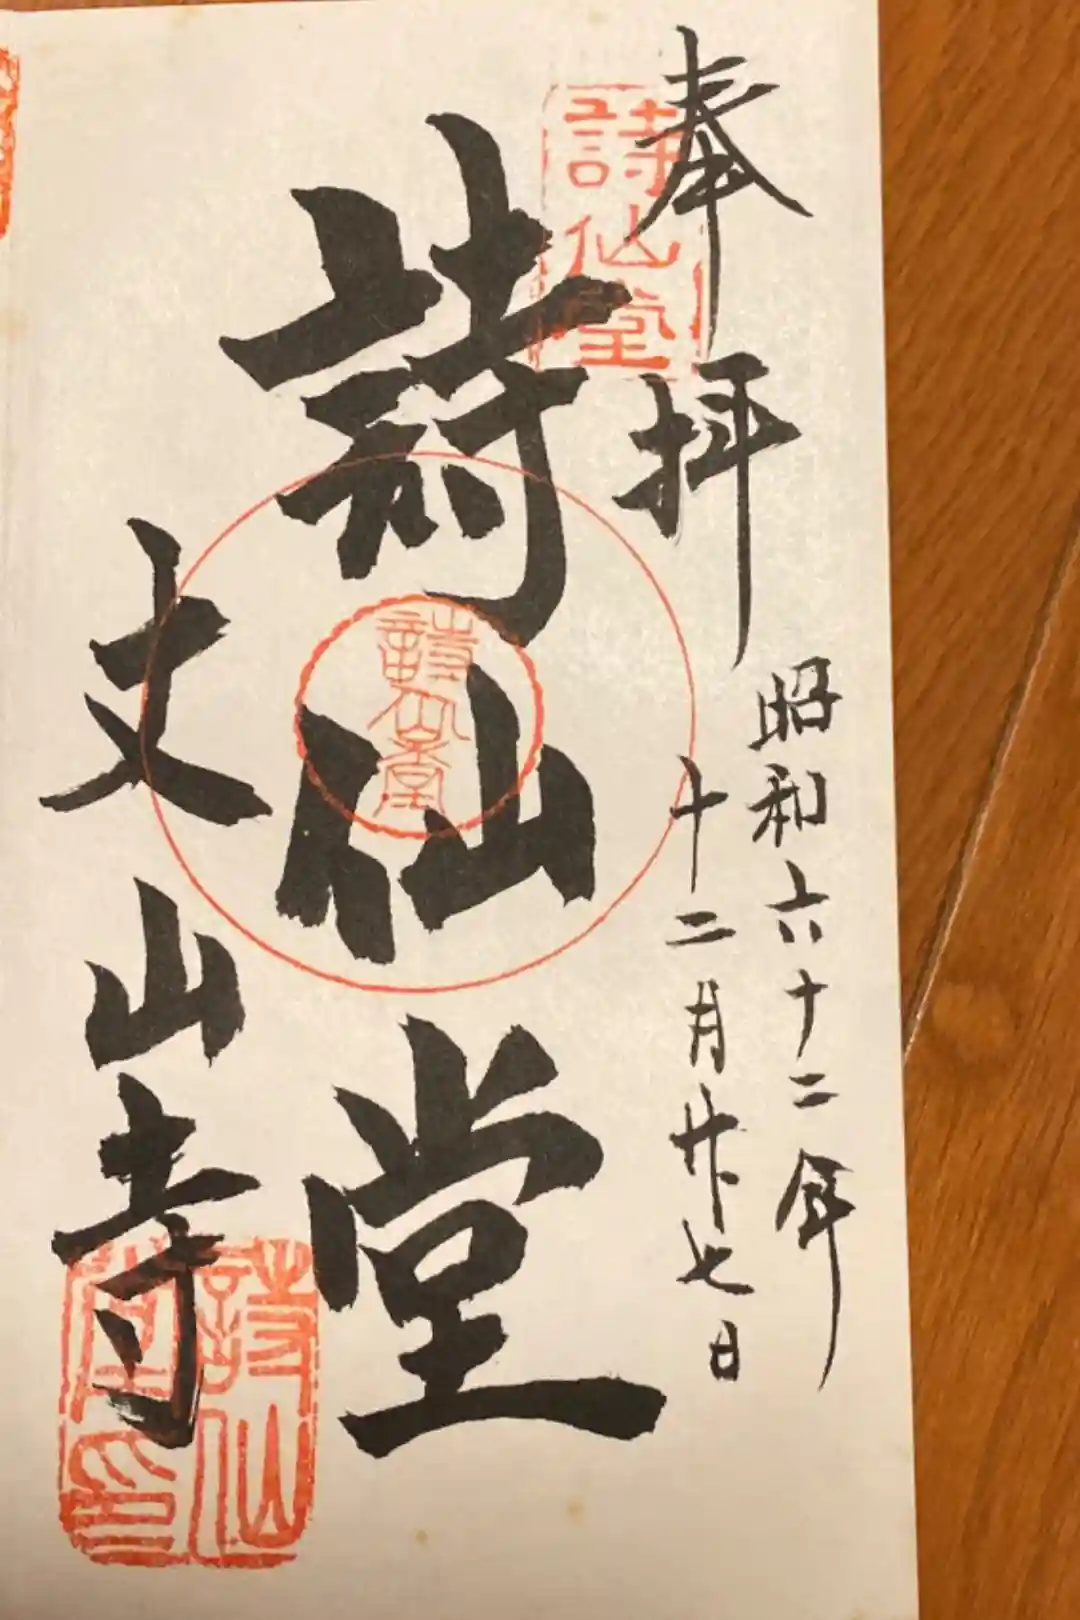 奉拝
詩仙堂
昭和六十二年
十二月廿七日
詩仙堂
詩仙堂
丈山寺
詩仙堂印